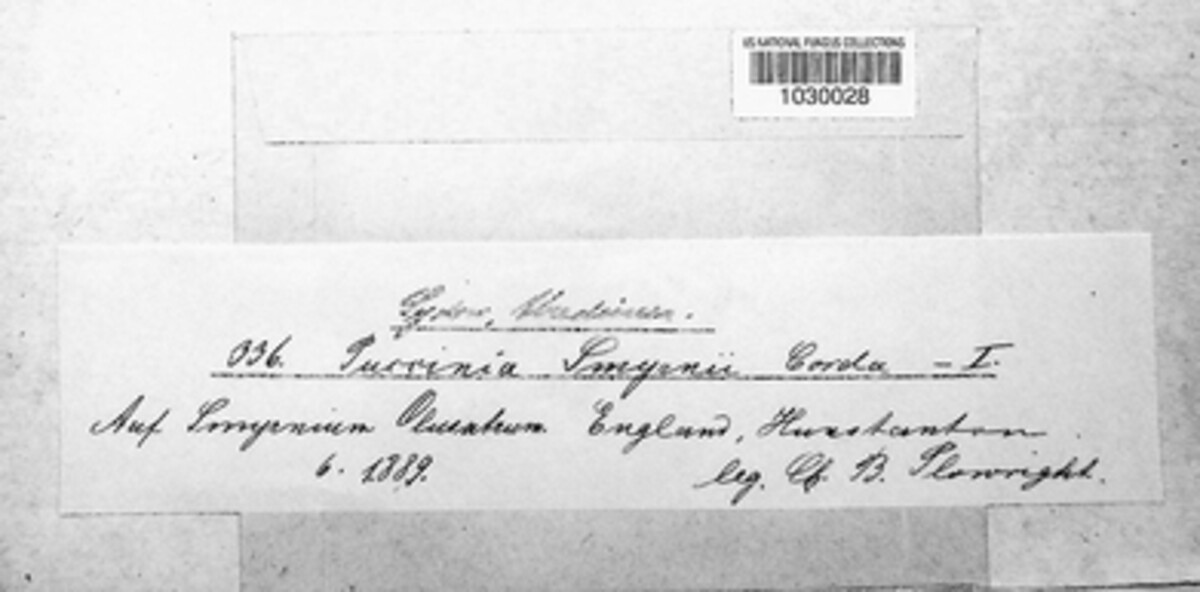 US NATIONAL FUNGUS COLLECTIONS
1030028
Sydow, Uredineen.
336. Puccinia Smyrnii Corda - I.
Auf Smyrnium Olusatrum England, Hunstanton
6. 1889. leg. Ch. B. Plowright.